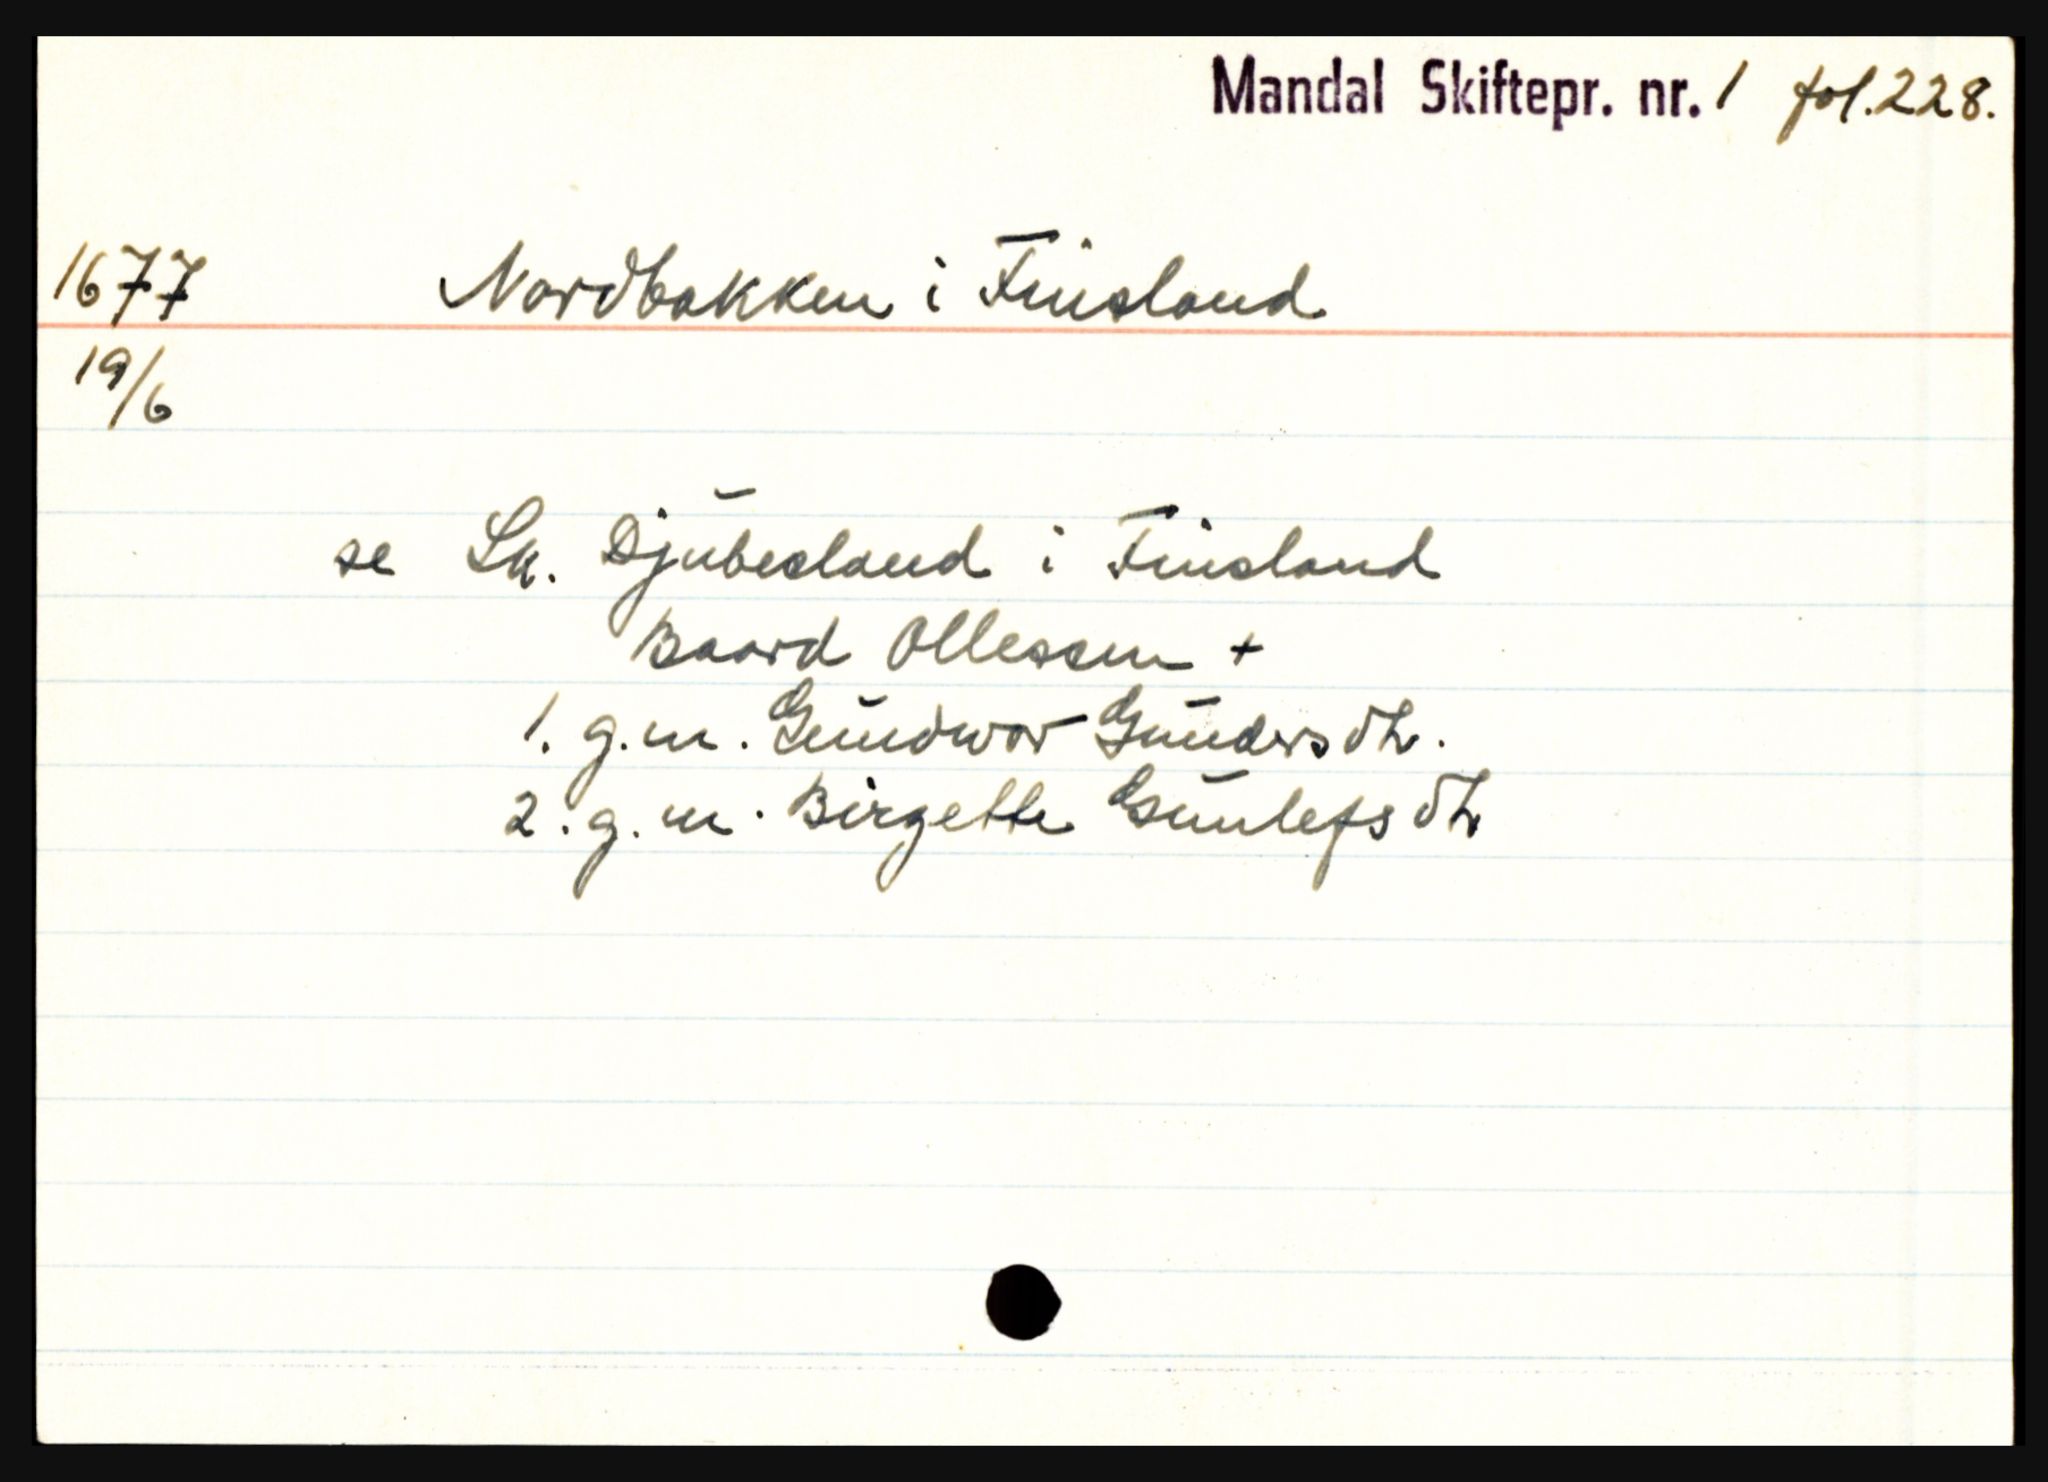 Mandal Skiftepr. nr. 1 fol. 228.
1677 Nordbakken i Finsland
19/6
se Sk. Djubesland i Finsland
Baard Ollessen +
1. g. m. Gundwor Gundersdtr.
2. g. m. Birgette Gunlefsdtr